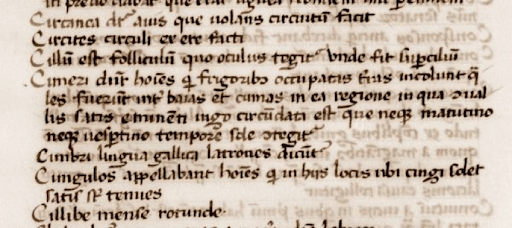 Circanea dr̄ auis que volans circuitū facit
Circites circuli ex ere facti
Cilliū est folliculū quo oculus tegit᷑ vnde fit suꝑciliū
Cimeri dn̄t hoīes q̄ frigoribꝫ occupatas t̄ras incolunt q̄
les fuerūt int᷑ baias et cumas in ea regione in qua ꝯual
lis satis eminēti iugo circūdata est que neqꝫ matutino
neqꝫ vesp̄tino tempore sole ꝯtegit᷑
Cimbri lingua gallica latrones dicūt᷑
Cingulos appellabant hoīes q̄ in hijs locis vbi cingi solet
satis sᵗ tenues
Cillibe mense rotunde